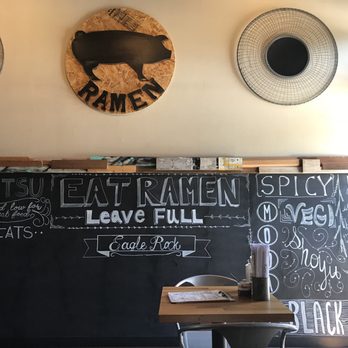 RAMEN
TSU
EATS.
EAT RAMEN
Leave Full
Eagle Rock
SPICY
VEGI
Shoyu
BLACK